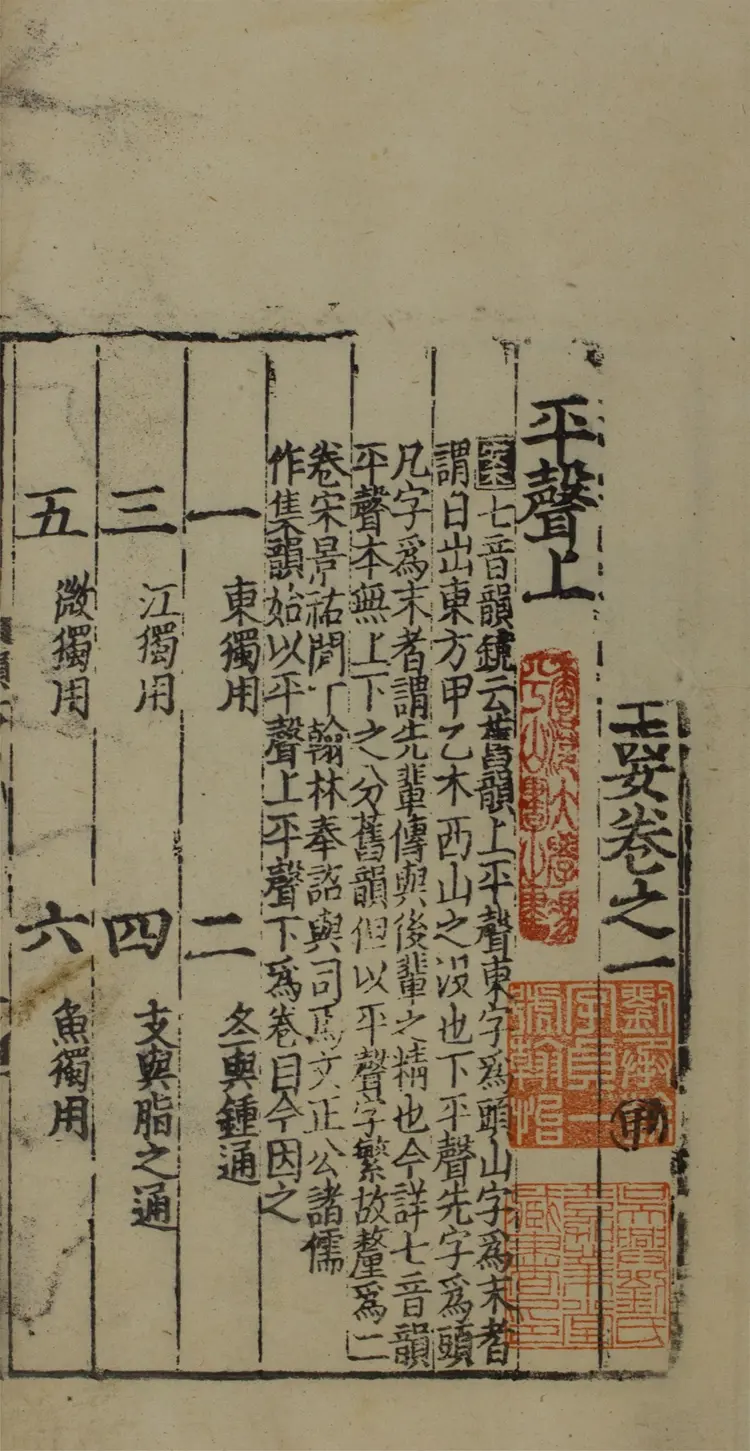 䂓卷之一
甲
平聲上
案七音韻鏡云舊韻上平聲東字爲頭山字爲末者
謂日出東方甲乙木西山之没也下平聲先字爲頭
凡字爲末者謂先輩傳與後輩之精也今詳七音韻
平聲本無上下之分舊韻但以平聲字繁故釐爲二
卷宋景祐間丁翰林奉詔與司馬文正公諸儒
作集韻始以平聲上平聲下爲卷目今因之
一 東獨用 二 冬與鍾通
三 江獨用 四 支與脂之通
五 微獨用 六 魚獨用